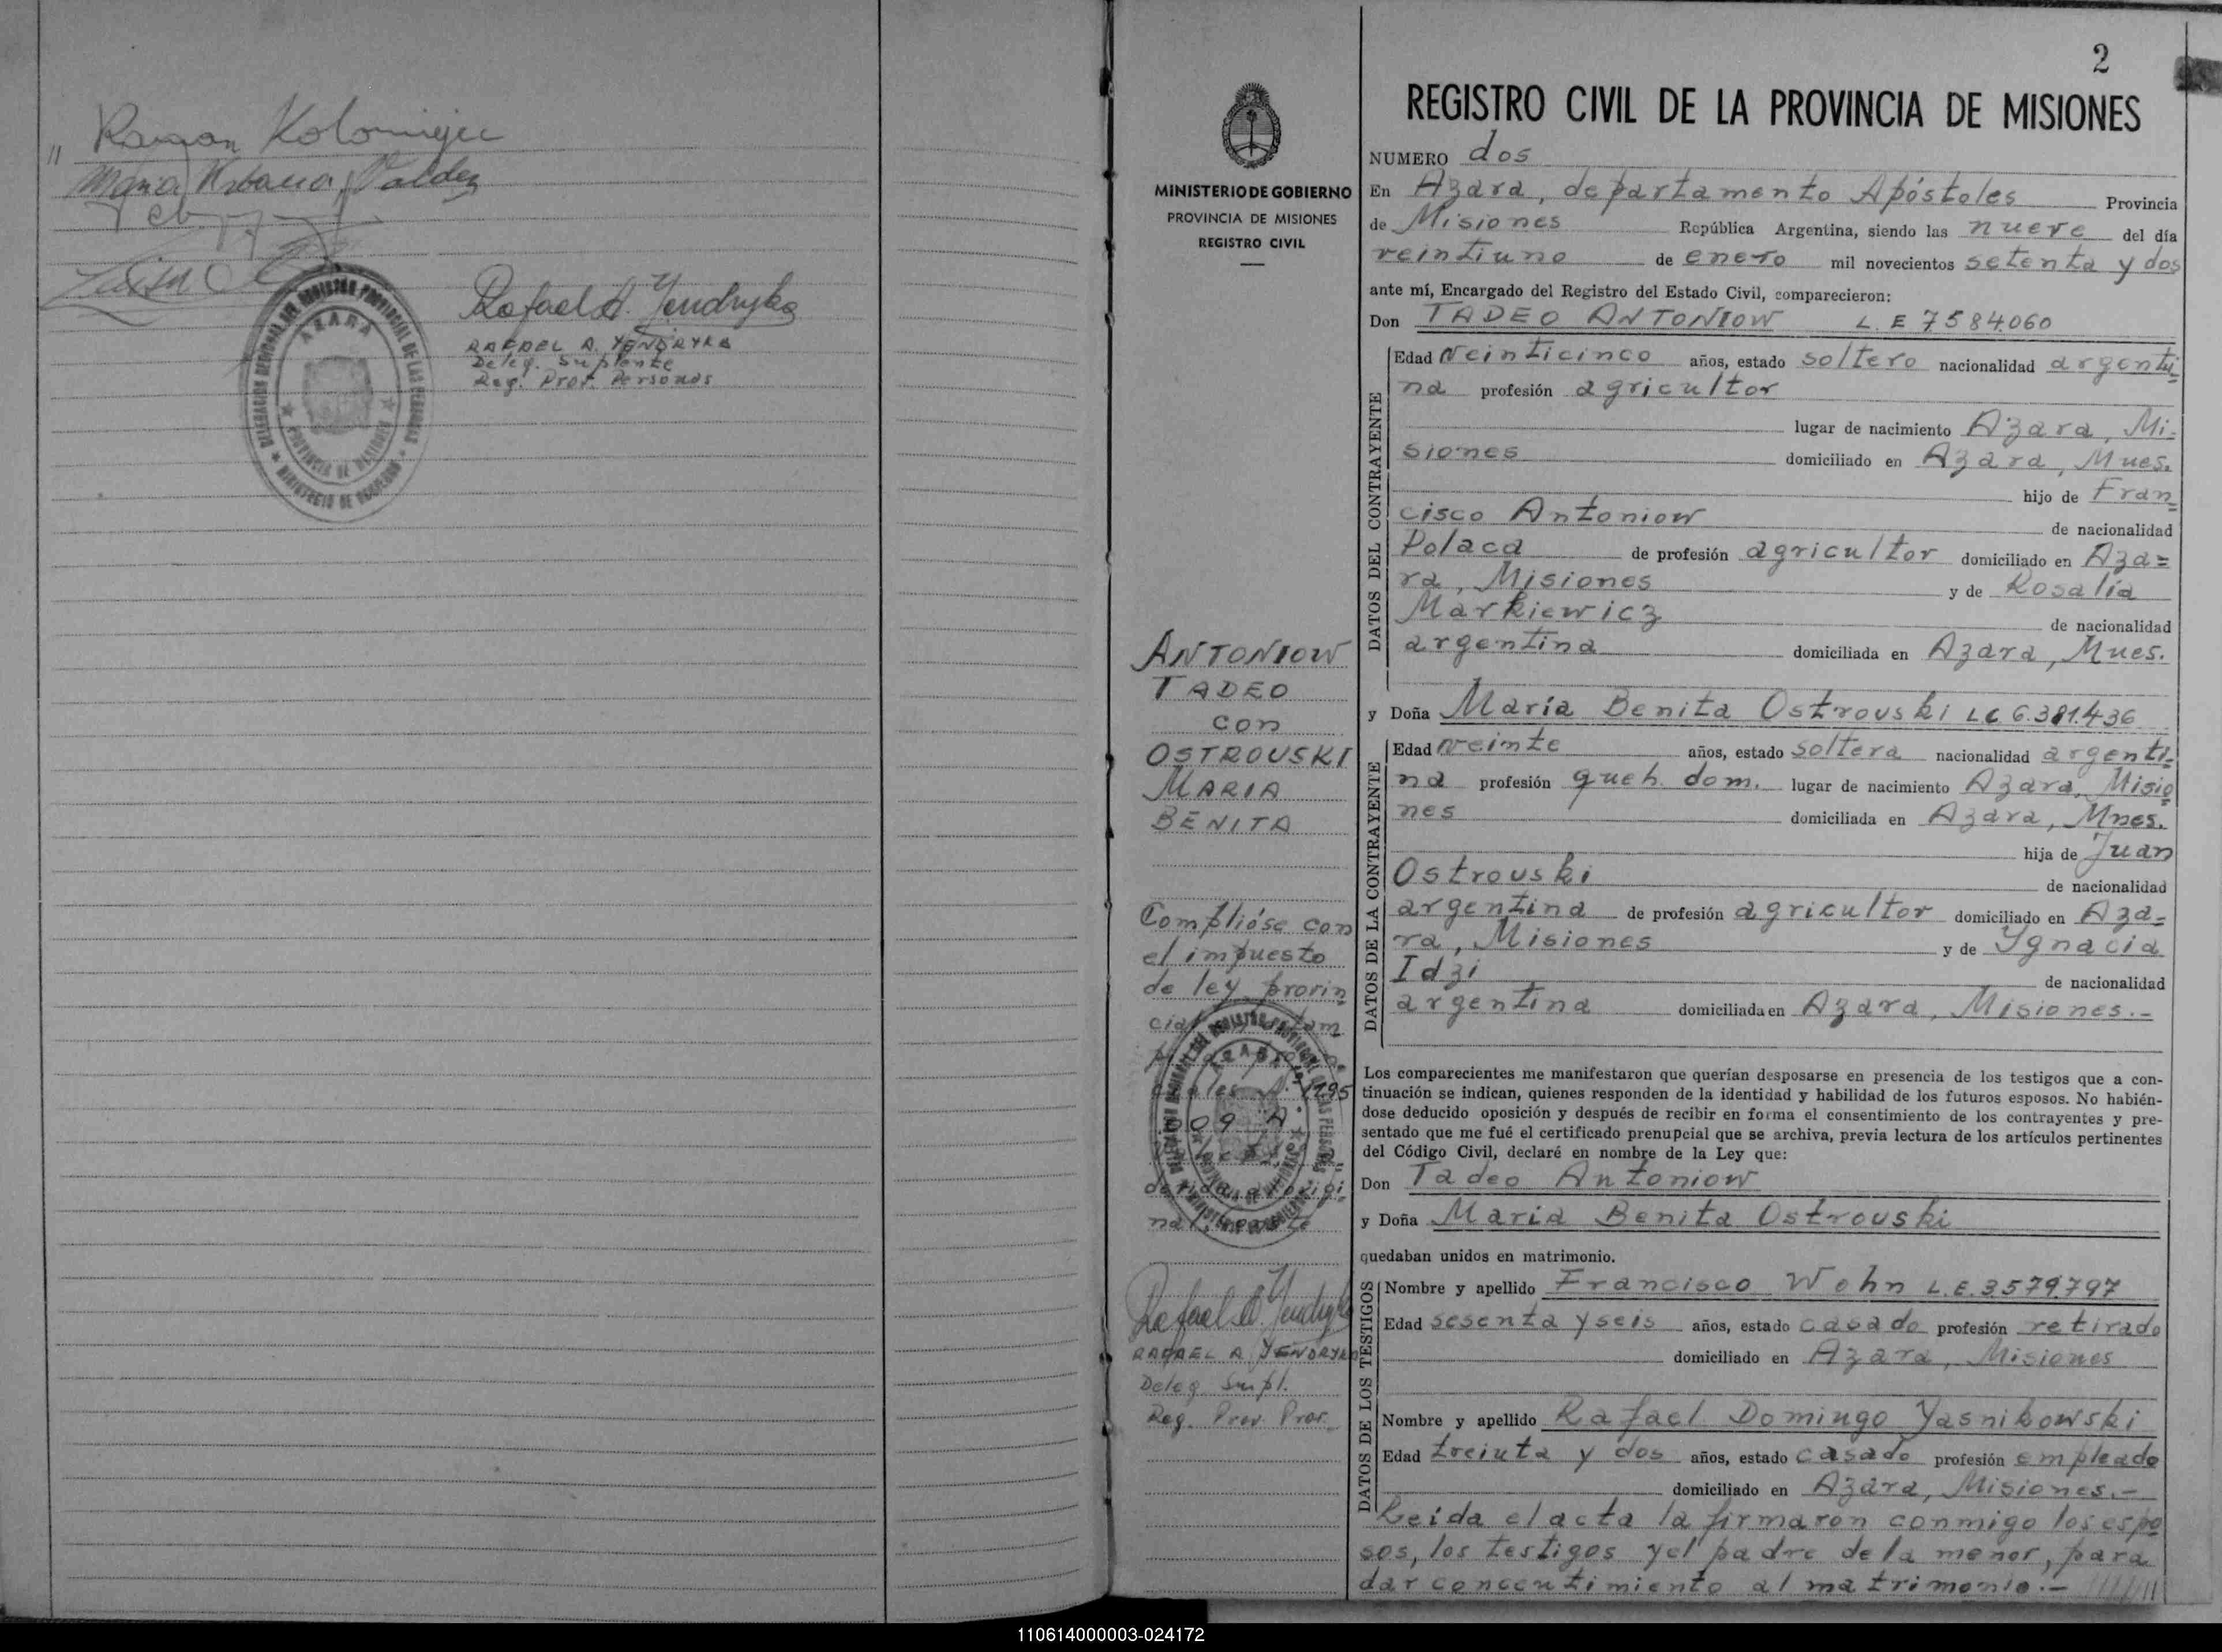 " Ramon Kolomiejec
Maria Urbana Valdez
Rafael A. Yendryka
RAFAEL A. YENDRYKA
Deleg. Suplente
Reg. Prov. Personas
DELEGACION REGIONAL DEL REGISTRO PROVINCIAL DE LAS PERSONAS
AZARA
PROVINCIA DE MISIONES
MINISTERIO DE GOBIERNO
MINISTERIO DE GOBIERNO
PROVINCIA DE MISIONES
REGISTRO CIVIL
ANTONIOW
TADEO
con
OSTROUSKI
MARIA
BENITA
Complióse con
el impuesto
de ley provin
cial
nal
Rafael A. Yendryka
RAFAEL A YENDRYKA
Deleg Supl.
Reg. Prov.
2
REGISTRO CIVIL DE LA PROVINCIA DE MISIONES
NUMERO dos
En Azara, departamento Apóstoles Provincia
de Misiones República Argentina, siendo las nueve del día
veintiuno de enero mil novecientos setenta y dos
ante mí, Encargado del Registro del Estado Civil, comparecieron:
Don TADEO ANTONIOW L. E 7584060
DATOS DEL CONTRAYENTE
Edad veinticinco años, estado soltero nacionalidad argenti-
na profesión agricultor
lugar de nacimiento Azara, Mi-
siones domiciliado en Azara, Mnes.
hijo de Fran
cisco Antoniow de nacionalidad
Polaca de profesión agricultor domiciliado en Aza=
ra, Misiones y de Rosalía
Markiewicz de nacionalidad
argentina domiciliada en Azara, Mnes.
y Doña María Benita Ostrouski LC 6.381.436
DATOS DE LA CONTRAYENTE
Edad veinte años, estado soltera nacionalidad argenti-
na profesión queh. dom. lugar de nacimiento Azara, Misio
nes domiciliada en Azara, Mnes.
hija de Juan
Ostrouski de nacionalidad
argentina de profesión agricultor domiciliado en Aza-
ra, Misiones y de Ygnacia
Idzi de nacionalidad
argentina domiciliada en Azara, Misiones.-
Los comparecientes me manifestaron que querían desposarse en presencia de los testigos que a con-
tinuación se indican, quienes responden de la identidad y habilidad de los futuros esposos. No habién-
dose deducido oposición y después de recibir en forma el consentimiento de los contrayentes y pre-
sentado que me fué el certificado prenupcial que se archiva, previa lectura de los artículos pertinentes
del Código Civil, declaré en nombre de la Ley que:
Don Tadeo Antoniow
y Doña Maria Benita Ostrouski
quedaban unidos en matrimonio.
DATOS DE LOS TESTIGOS
Nombre y apellido Francisco Wohn L.E. 3.579.797
Edad sesenta y seis años, estado casado profesión retirado
domiciliado en Azara, Misiones
Nombre y apellido Rafael Domingo Yasnikowski
Edad treinta y dos años, estado casado profesión empleado
domiciliado en Azara, Misiones.-
Leída el acta la firmaron conmigo los espo
sos, los testigos y el padre de la menor, para
dar concentimiento al matrimonio.-
110614000003-024172